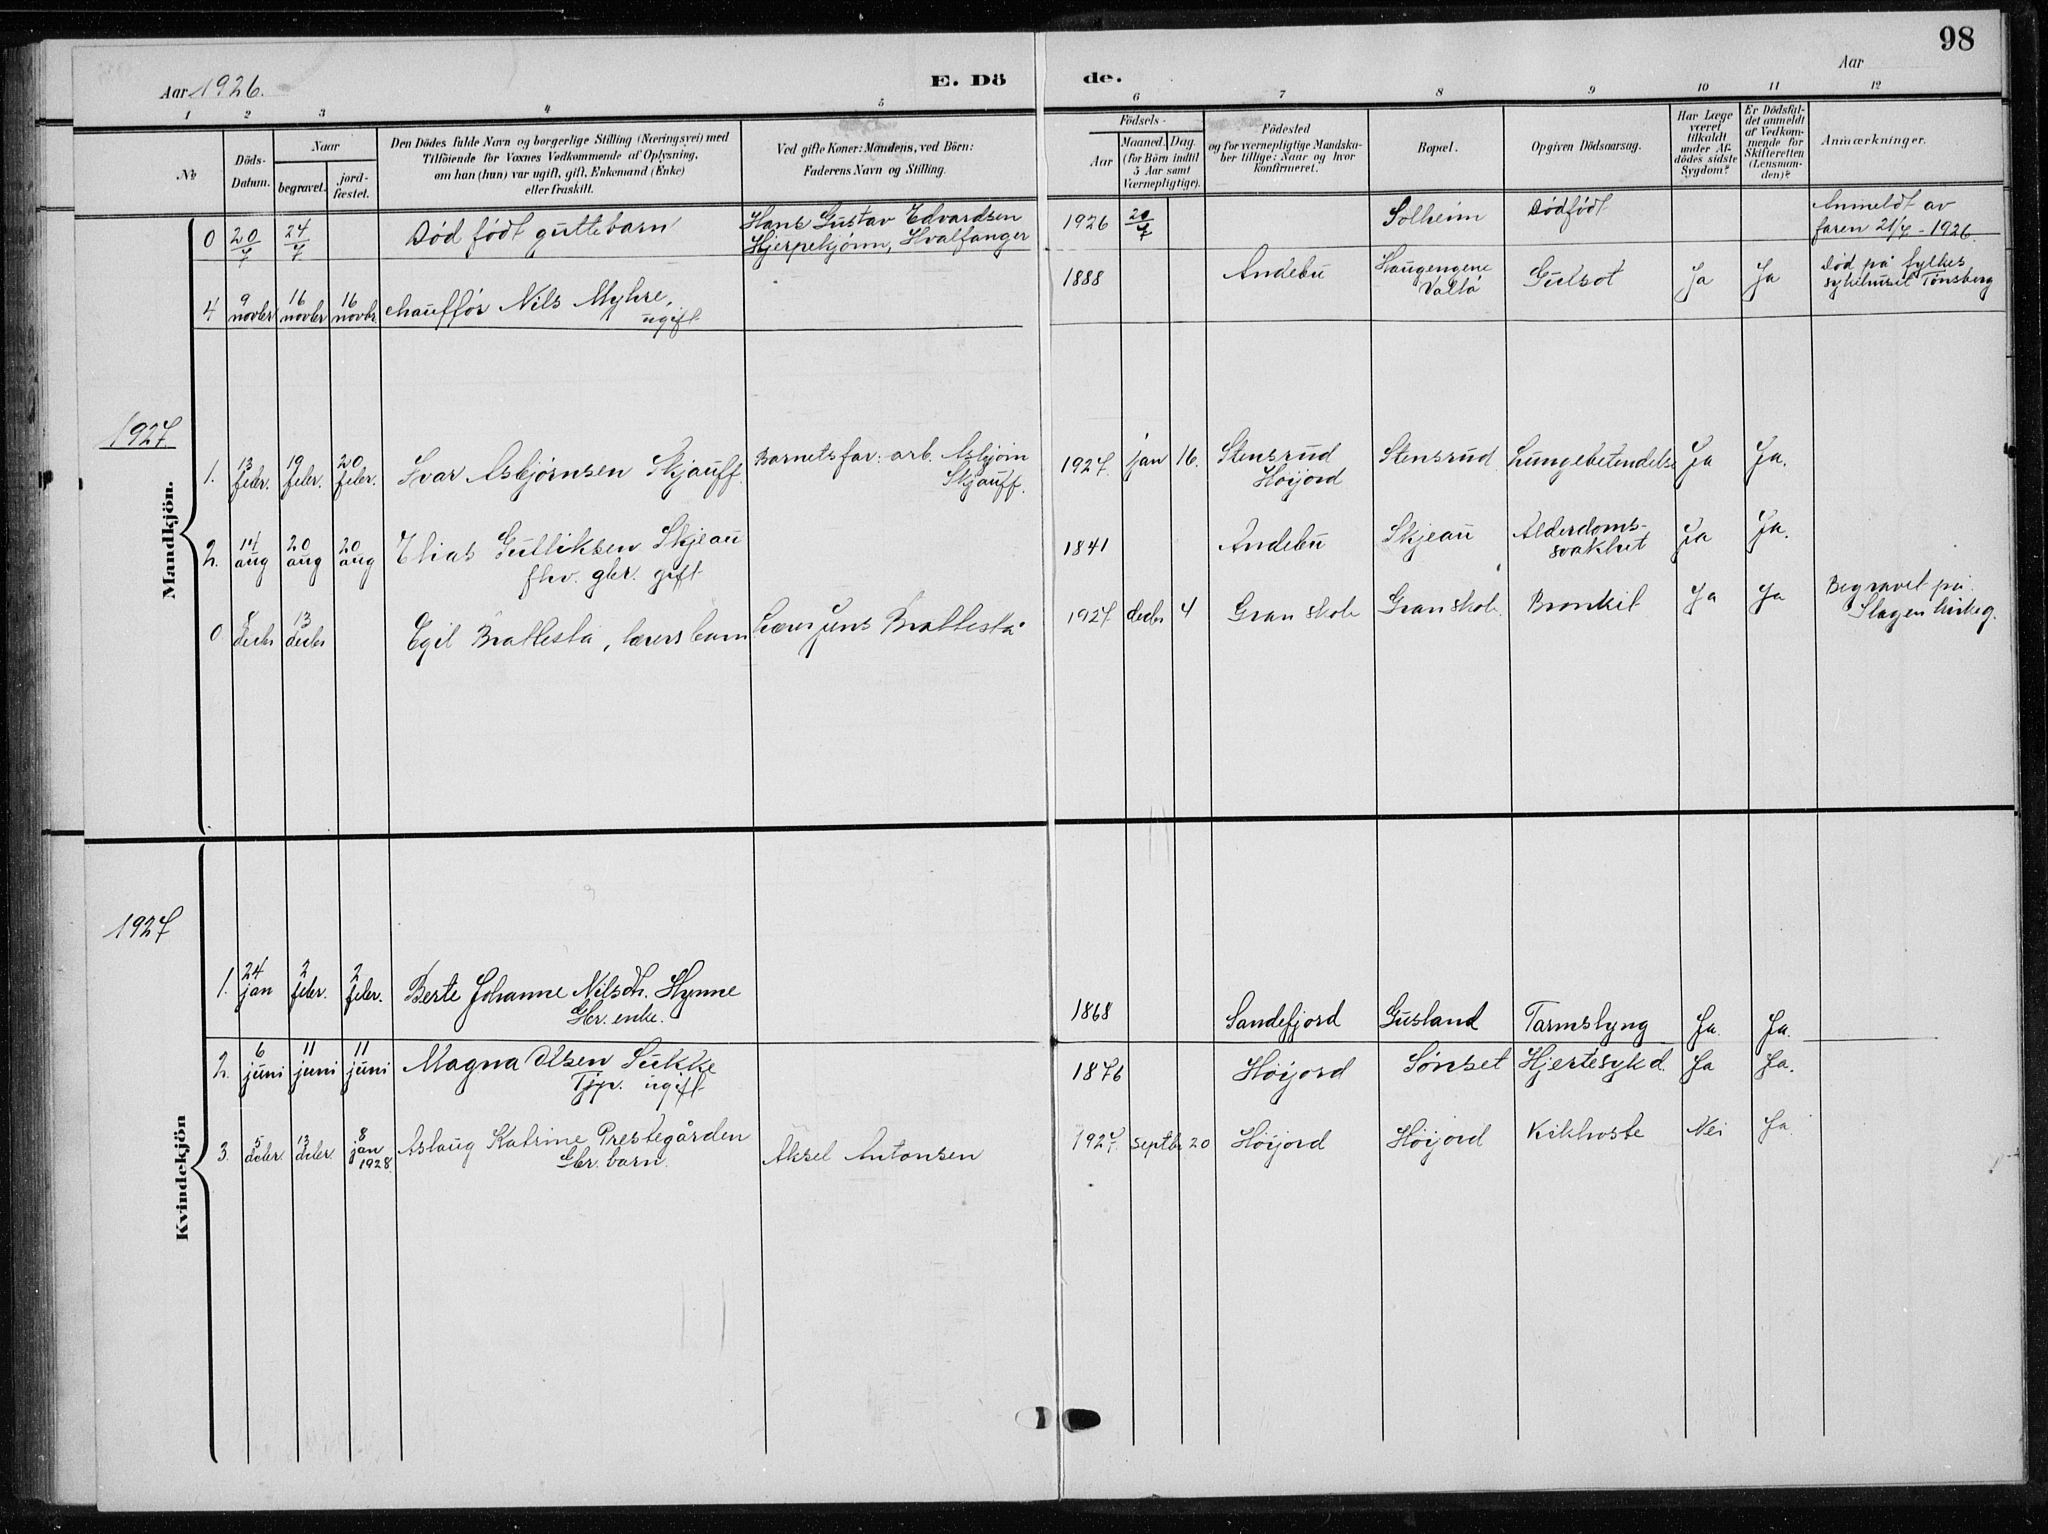 98
Aar 1926.
E. Dö de.
Aar
1 2 3 4 5 6 7 8 9 10 11 12
№
Döds-
Datum.
Naar
begravet.
jord-
fæstet.
Den Dödes fulde Navn og borgerlige Stilling (Næringsvei) med
Tilföiende for Voxnes Vedkommende af Oplysning,
om han (hun) var ugift, gift, Enkemand (Enke)
eller fraskilt.
Ved gifte Koner: Mandens, ved Börn:
Faderens Navn og Stilling.
Födsels-
Aar
Maaned. Dag.
(for Börn indtil
5 Aar samt
Værnepligtige).
Födested
og for værnepligtige Mandska-
ber tillige: Naar og hvor
konfirmeret.
Bopæl.
Opgiven Dödsaarsag.
Har Læge
været
tilkaldt
under Af-
dödes sidste
Sygdom?
Er Dödsfal-
det anmeldt
af Vedkom-
mende for
Skifteretten
(Lensman-
den)?
Anmærkninger.
Mandkjön.
0 20/7 24/7 Död födt guttebarn Hans Gustav Edvardsen
Hjerpekjönn, Hvalfanger
1926 20/7 Solheim Dödfödt Anmeldt av
faren 21/7 - 1926.
4 9 novbr 16 novbr 16 novbr chaufför Nils Myhre.
ugift
1888 Andebu Haugengene
Vallö Gulsot Ja Ja Död på fylkes
sykehuset Tönsberg
1927.
1. 13 febr. 19 febr. 20 febr. Ivar Asbjørnsen Skjauff. Barnetsfar: arb. Asbjörn
Skjauff.
1927. jan 16. Stensrud
Höijord Stensrud Lungebetendelse Ja Ja.
2. 14 aug 20 aug 20 aug Elias Gulliksen Skjeau
fhv. gbr. gift
1841 Andebu Skjeau Alderdoms-
svakhet Ja Ja.
0 8 decbr 13 decbr Egil Brattestå, lærers barn Lærer Jens Brattestå
1927 decbr 4 Gran skole Gran skole Bronkit Ja Ja Begravet på
Slagen kirkeg.
1927
Kvindekjön
1. 24 jan 2 febr. 2 febr. Berte Johanne Nilsdtr. Hynne
Gbr. enke.
1868 Sandefjord Gusland Tarmslyng Ja. Ja.
2. 6 juni 11 juni 11 juni Magna Olsen Sukke
Tjp. ugift
1876 Höijord Sönset Hjertesykd. Ja Ja.
3. 5 decbr. 13 decbr. 8 jan 1928. Aslaug Katrine Prestegården
Gbr. barn. Aksel Antonsen
1927. septbr 20 Höijord Höijord Kikhoste Nei Ja